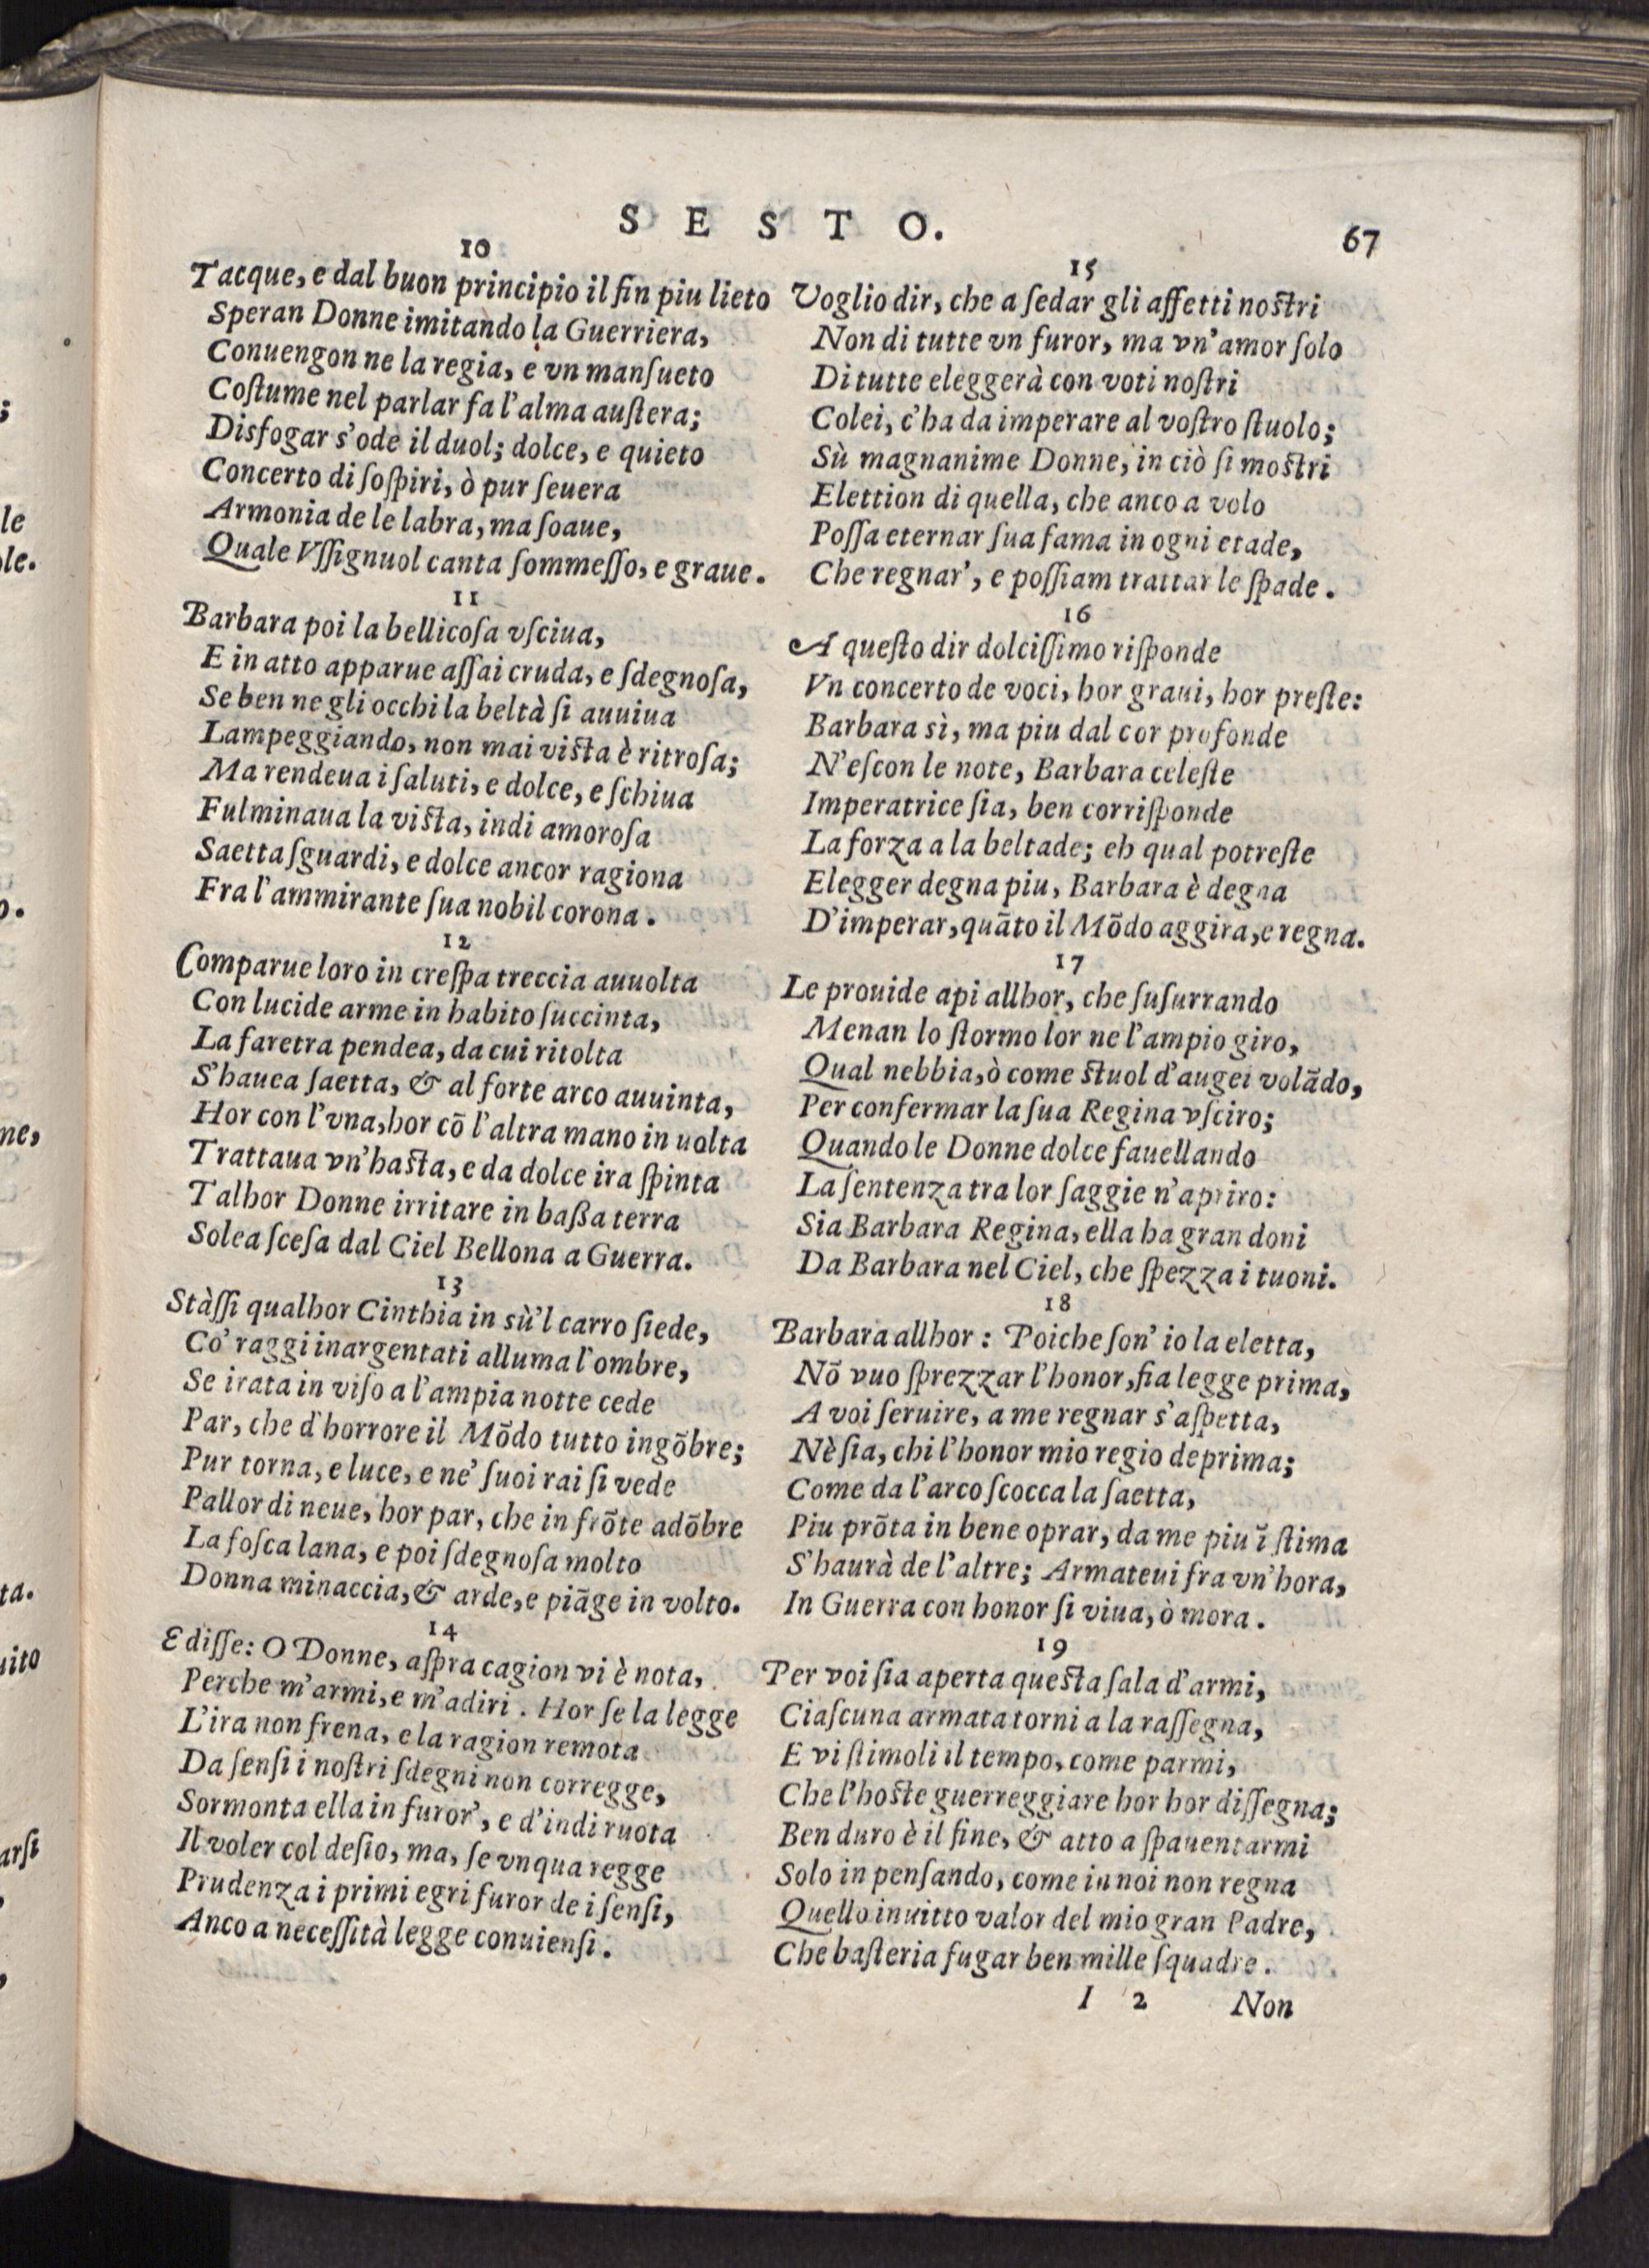 SESTO.
67
10
Tacque, e dal buon principio il fin piu lieto
Speran Donne imitando la Guerriera,
Conuengon ne la regia, e vn mansueto
Costume nel parlar fa l'alma austera;
Disfogar s'ode il duol; dolce, e quieto
Concerto di sospiri, ò pur seuera
Armonia de le labra, ma soaue,
Quale Vssignuol canta sommesso, e graue.
11
Barbara poi la bellicosa vsciua,
E in atto apparue assai cruda, e sdegnosa,
Se ben ne gli occhi la beltà si auuiua
Lampeggiando, non mai vista è ritrosa;
Ma rendeua i saluti, e dolce, e schiua
Fulminaua la vista, indi amorosa
Saetta sguardi, e dolce ancor ragiona
Fra l'ammirante sua nobil corona.
12
Comparue loro in crespa treccia auuolta
Con lucide arme in habito succinta,
La faretra pendea, da cui ritolta
S'hauea saetta, & al forte arco auuinta,
Hor con l'vna, hor cõ l'altra mano in uolta
Trattaua vn'hasta, e da dolce ira spinta
Talhor Donne irritare in baßa terra
Solea scesa dal Ciel Bellona a Guerra.
13
Stàssi qualhor Cinthia in sù'l carro siede,
Co' raggi inargentati alluma l'ombre,
Se irata in viso a l'ampia notte cede
Par, che d'horrore il Mõdo tutto ingõbre;
Pur torna, e luce, e ne' suoi rai si vede
Pallor di neue, hor par, che in frõte adõbre
La fosca lana, e poi sdegnosa molto
Donna minaccia, & arde, e piãge in volto.
14
E disse: O Donne, aspra cagion vi è nota,
Perche m'armi, e m'adiri. Hor se la legge
L'ira non frena, e la ragion remota
Da sensi i nostri sdegni non corregge,
Sormonta ella in furor', e d'indi ruota
Il voler col desio, ma, se vnqua regge
Prudenza i primi egri furor de i sensi,
Anco a necessità legge conuiensi.
15
Voglio dir, che a sedar gli affetti nostri
Non di tutte vn furor, ma vn'amor solo
Di tutte eleggerà con voti nostri
Colei, c'ha da imperare al vostro stuolo;
Sù magnanime Donne, in ciò si mostri
Elettion di quella, che anco a volo
Possa eternar sua fama in ogni etade,
Che regnar', e possiam trattar le spade.
16
A questo dir dolcissimo risponde
Vn concerto de voci, hor graui, hor preste:
Barbara sì, ma piu dal cor profonde
N'escon le note, Barbara celeste
Imperatrice sia, ben corrisponde
La forza a la beltade; eh qual potreste
Elegger degna piu, Barbara è degna
D'imperar, quãto il Mõdo aggira, e regna.
17
Le prouide api allhor, che susurrando
Menan lo stormo lor ne l'ampio giro,
Qual nebbia, ò come stuol d'augei volãdo,
Per confermar la sua Regina vsciro;
Quando le Donne dolce fauellando
La sentenza tra lor saggie n'apriro:
Sia Barbara Regina, ella ha gran doni
Da Barbara nel Ciel, che spezza i tuoni.
18
Barbara allhor: Poiche son' io la eletta,
Nõ vuo sprezzar l'honor, fia legge prima,
A voi seruire, a me regnar s'aspetta,
Nè sia, chi l'honor mio regio deprima;
Come da l'arco scocca la saetta,
Piu prõta in bene oprar, da me piu ĩ stima
S'haurà de l'altre; Armateui fra vn'hora,
In Guerra con honor si viua, ò mora.
19
Per voi sia aperta questa sala d'armi,
Ciascuna armata torni a la rassegna,
E vi stimoli il tempo, come parmi,
Che l'hoste guerreggiare hor hor dissegna;
Ben duro è il fine, & atto a spauentarmi
Solo in pensando, come in noi non regna
Quello inuitto valor del mio gran Padre,
Che basteria fugar ben mille squadre.
I 2 Non